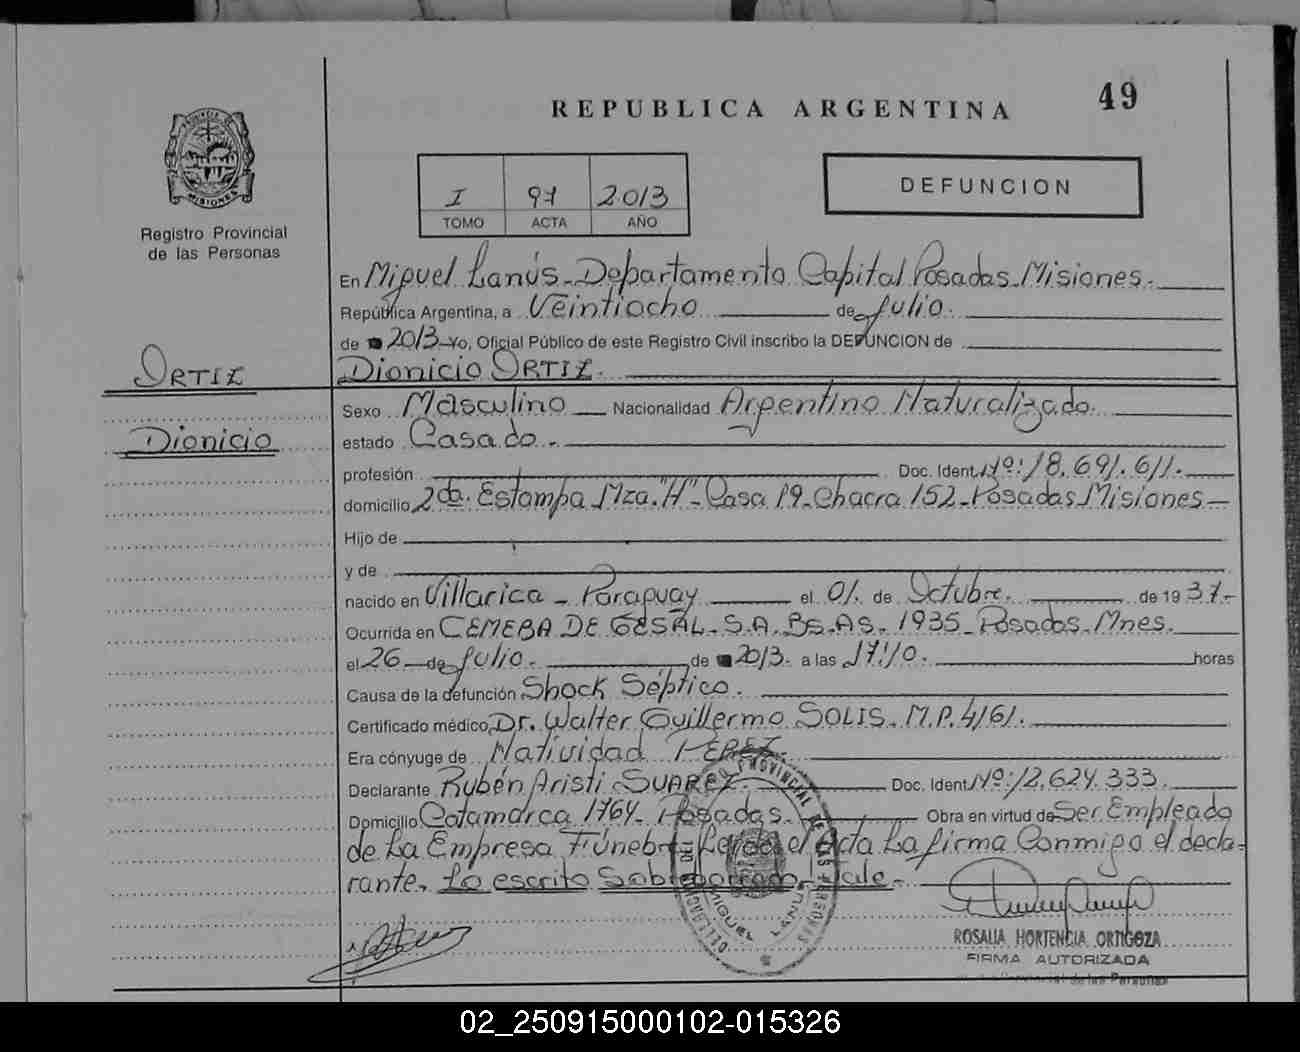 REPUBLICA ARGENTINA
49
PROVINCIA DE MISIONES
Registro Provincial
de las Personas
I 97 2013
TOMO ACTA AÑO
DEFUNCION
En Miguel Lanús - Departamento Capital Posadas - Misiones.-
República Argentina, a Veintiocho de Julio.
de 2013 - Yo, Oficial Público de este Registro Civil inscribo la DEFUNCION de
ORTIZ
Dionicio ORTIZ.
Sexo Masculino Nacionalidad Argentino Naturalizado.
Dionicio
estado Casado.-
profesión Doc. Ident. Nº: 18.691.611.
domicilio 2da. Estampa Mza. "H" - Casa 19 - Chacra 152 - Posadas Misiones -
Hijo de
y de
nacido en Villarica - Paraguay el 01. de Octubre. de 19 37.-
Ocurrida en CEMEBA DE GESAL - S.A. BS. AS. 1935 - Posadas - Mnes.
el 26 - de Julio. de 2013. a las 17:10. horas
Causa de la defunción Shock Séptico.
Certificado médico Dr. Walter Guillermo SOLIS - M.P. 4161.
Era cónyuge de Natividad PEREZ.
Declarante Rubén Aristi SUAREZ. Doc. Ident. Nº: 12.624.333.
Domicilio Catamarca 1764 - Posadas. Obra en virtud de Ser Empleado
de La Empresa Fúnebre - Leída el Acta La firma Conmigo el decla-
rante. Lo escrito Sobreborrado Vale.-
MIGUEL LANUS
ROSALIA HORTENCIA ORTIGOZA
FIRMA AUTORIZADA
Provincial de las Personas
02_250915000102-015326